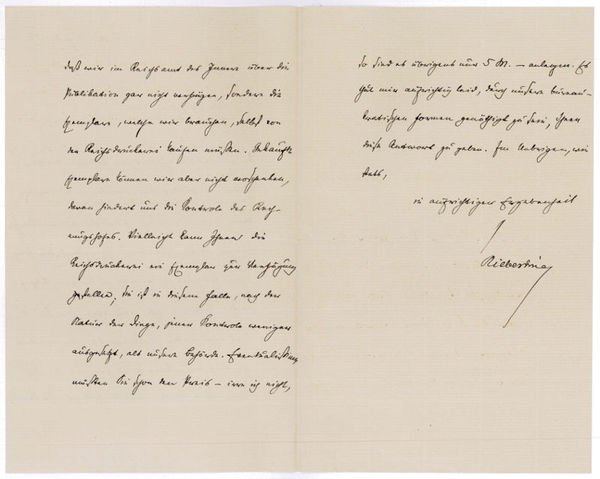 daß wir im Reichsamt des Innern über die
Publikation gar nicht verfügen, sondern die
Exemplare, welche wir brauchen, selbst von
der Reichsdruckerei kaufen müssen. Gekaufte
Exemplare können wir aber nicht verschenken,
daran hindert uns die Kontrole des Rech-
nungshofes. Vielleicht kann Ihnen die
Reichsdruckerei ein Exemplar zur Verfügung
stellen; sie ist in diesem Falle, nach der
Natur der Dinge, jener Kontrole weniger
ausgesetzt, als unsere Behörde. Eventualiter
müßten Sie schon den Preis – irre ich nicht,
so sind es übrigens nur 5 M. – anlegen. Es
thut mir aufrichtig leid, durch unsere bureau-
kratischen Formen genöthigt zu sein, Ihnen
diese Antwort zu geben. Im Uebrigen, wie
stets,
in aufrichtiger Ergebenheit